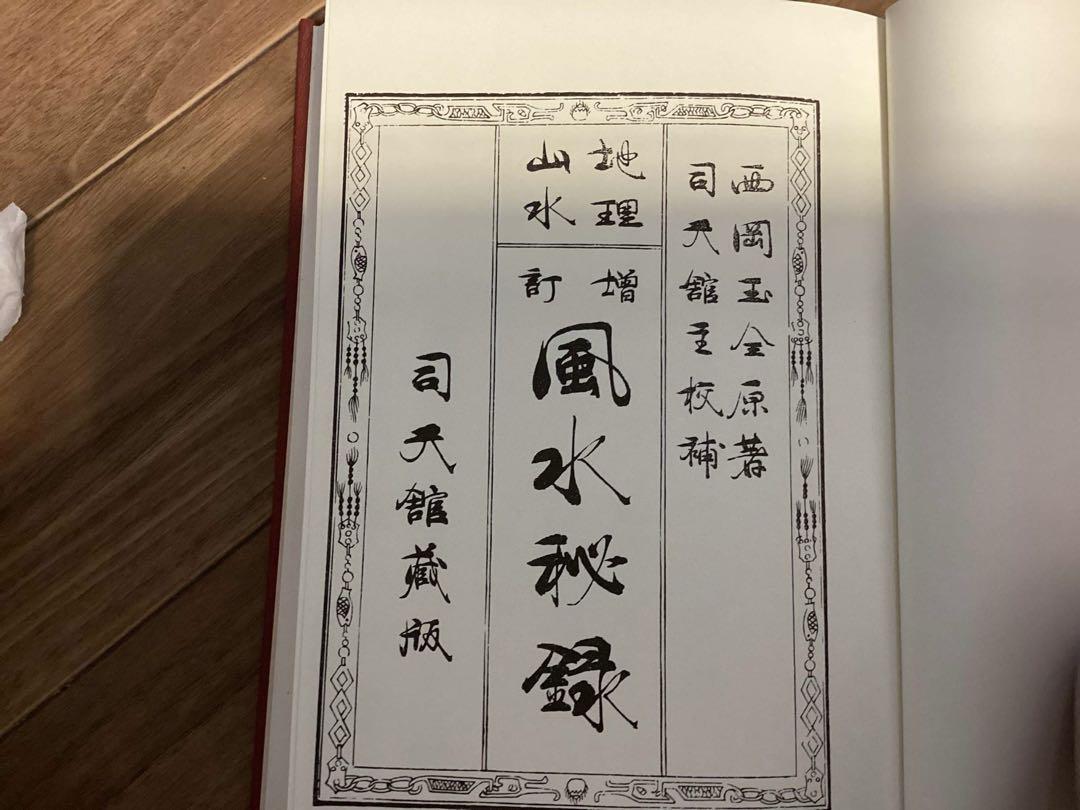 西岡玉全原著
司天館主校補
地理
山水
增訂
風水秘録
司天館藏版